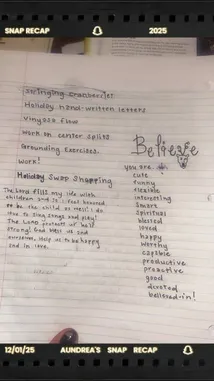 SNAP RECAP
2025
Stringing Cranberries
Holiday hand-written letters
Vinyasa Flow
work on center splits
Grounding Exercises.
work!
Holiday Swap Shopping
The Lord fills my life with
children and so I feel honored
to be the child as well! I do
love to sing songs and play!
The LORD protects us
strong! God bless us and
everyone. Help us to be happy
and in love.
Believe
you are
cute
funny
flexible
interesting
smart
spiritual
blessed
loved
happy
worthy
capable
productive
proactive
good
devoted
believed-in!
12/01/25
AUNDREA'S SNAP RECAP